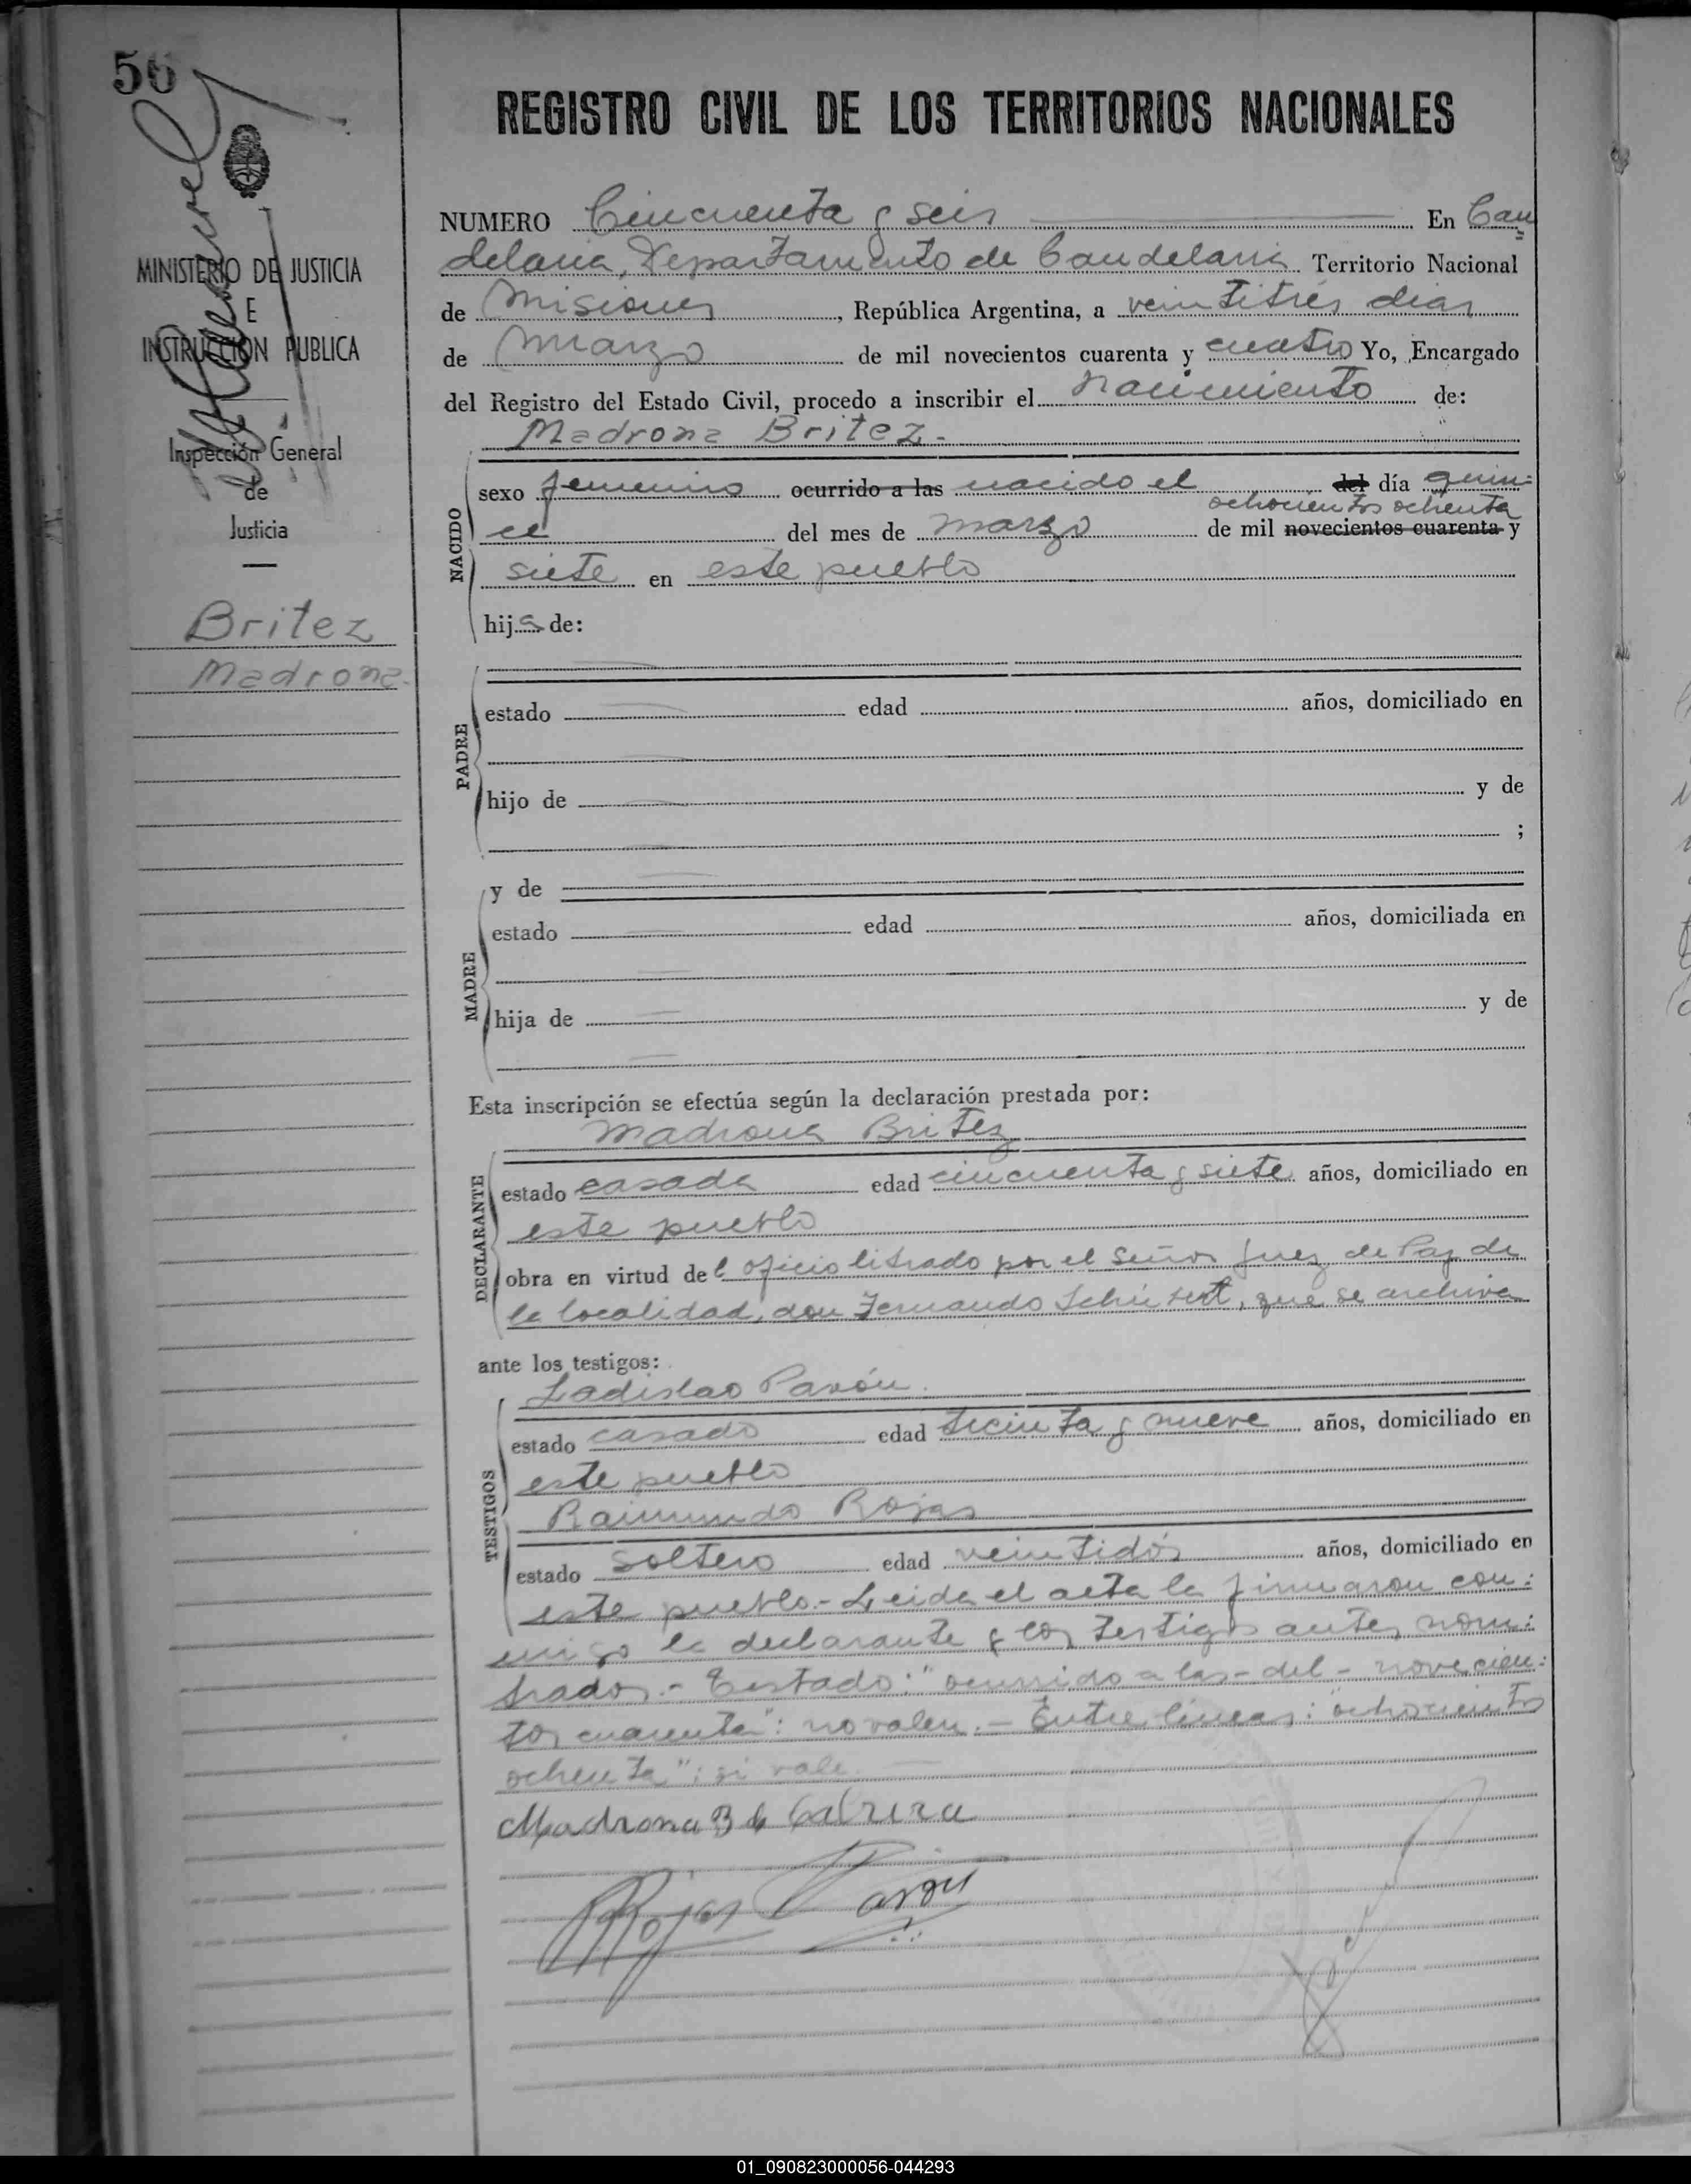 56
REGISTRO CIVIL DE LOS TERRITORIOS NACIONALES
MINISTERIO DE JUSTICIA
E
INSTRUCCION PUBLICA
Inspección General
de
Justicia
Britez
Madrona.
NUMERO Cincuenta y seis En Can
delaria, Departamento de Candelaria Territorio Nacional
de Misiones, República Argentina, a veintitrés dias
de Marzo de mil novecientos cuarenta y cuatro Yo, Encargado
del Registro del Estado Civil, procedo a inscribir el nacimiento de:
Madrona Britez.-
NACIDO
sexo femenino ocurrido a las nacido el del día quin=
ochocientos ochenta
ce del mes de marzo de mil novecientos cuarenta y
siete en este pueblo
hija de:
PADRE
estado edad años, domiciliado en
hijo de y de
;
MADRE
y de
estado edad años, domiciliada en
hija de y de
Esta inscripción se efectúa según la declaración prestada por:
Madrona Britez
DECLARANTE
estado casada edad cincuenta y siete años, domiciliado en
este pueblo
obra en virtud del oficio librado por el Señor Juez de Paz de
la localidad, don Fernando Schubert, que se archiva
ante los testigos:
Ladislao Pavón.
TESTIGOS
estado casado edad treinta y nueve años, domiciliado en
este pueblo
Raimundo Rojas
estado soltero edad veintidós años, domiciliado en
este pueblo.- Leida el acta la firmaron con=
migo la declarante y los testigos antes nom=
brados.- Testado: "ocurrido a las - del - novecien=
tos cuarenta": no valen.- Entre líneas: "ochocientos
ochenta": si vale.
Madrona B de Cabrera
RRojas Pavón
01_090823000056-044293